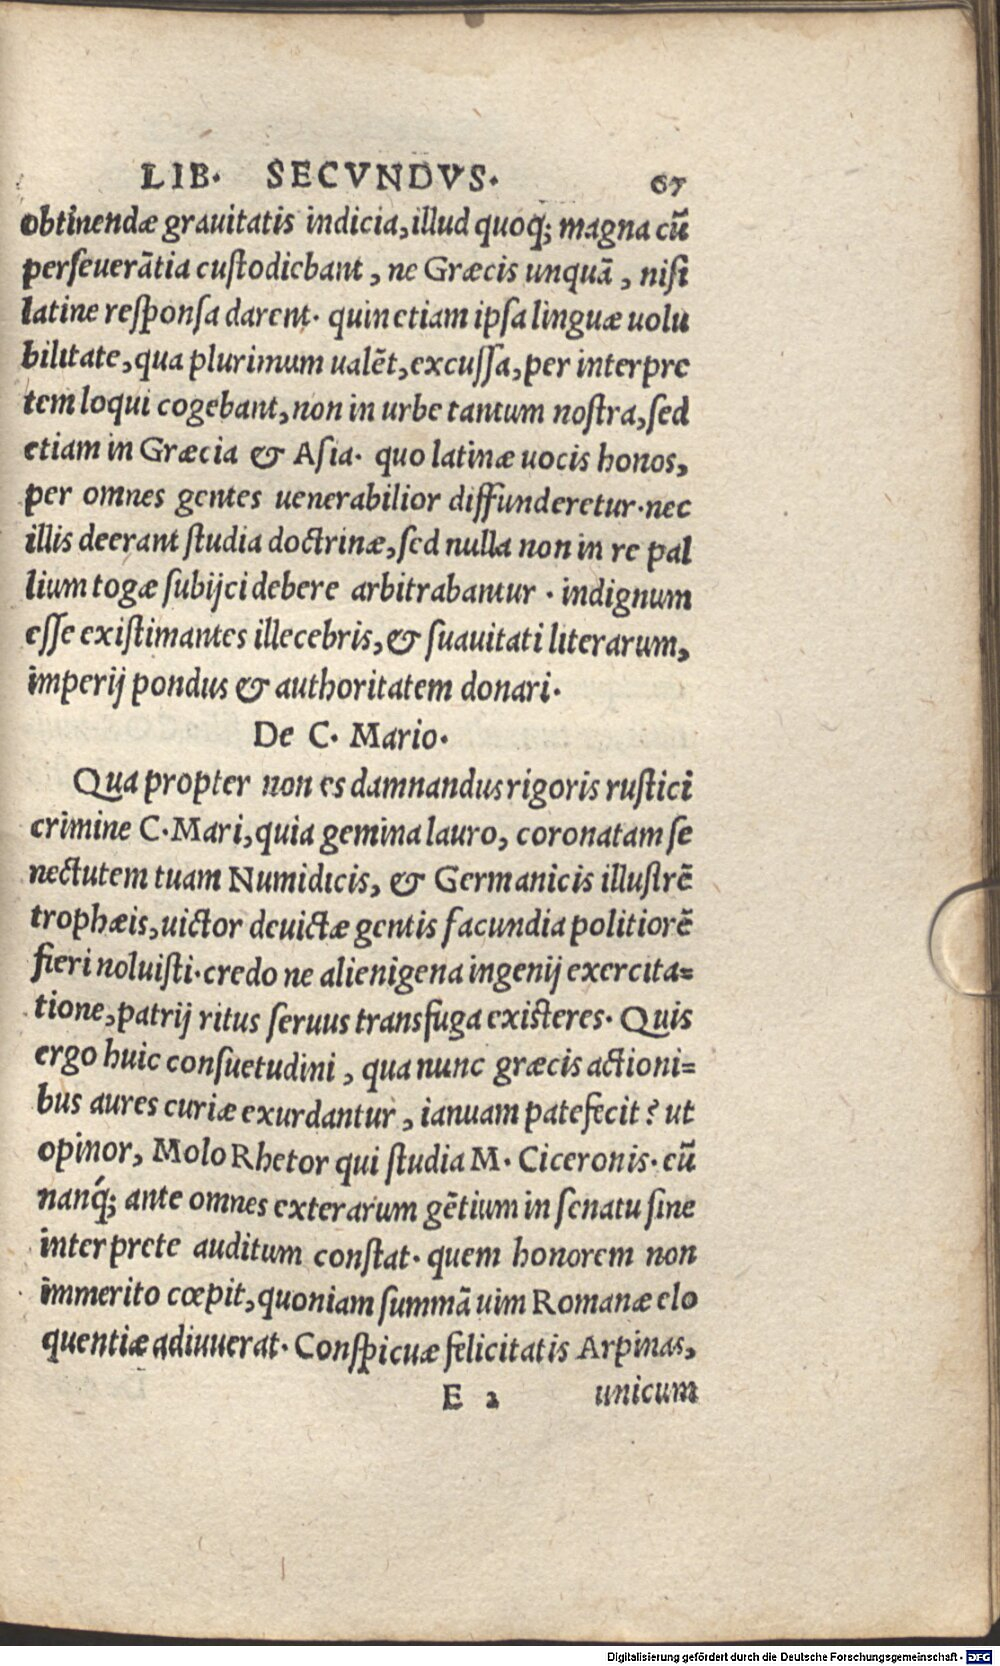 LIB. SECVNDVS. 67
obtinendæ grauitatis indicia, illud quoq; magna cū
perseuerātia custodiebant, ne Græcis unquā, nisi
latine responsa darent. quinetiam ipsa linguæ uolu
bilitate, qua plurimum ualēt, excussa, per interpre
tem loqui cogebant, non in urbe tantum nostra, sed
etiam in Græcia & Asia. quo latinæ uocis honos,
per omnes gentes uenerabilior diffunderetur. nec
illis deerant studia doctrinæ, sed nulla non in re pal
lium togæ subijci debere arbitrabantur. indignum
esse existimantes illecebris, & suauitati literarum,
imperij pondus & authoritatem donari.
De C. Mario.
Qua propter non es damnandus rigoris rustici
crimine C. Mari, quia gemina lauro, coronatam se
nectutem tuam Numidicis, & Germanicis illustrē
trophæis, uictor deuictæ gentis facundia politiorē
fieri noluisti. credo ne alienigena ingenij exercita=
tione, patrij ritus seruus transfuga existeres. Quis
ergo huic consuetudini, qua nunc græcis actioni=
bus aures curiæ exurdantur, ianuam patefecit? ut
opinor, Molo Rhetor qui studia M. Ciceronis. eū
nanq́; ante omnes exterarum gētium in senatu sine
interprete auditum constat. quem honorem non
immerito cœpit, quoniam summā uim Romanæ elo
quentiæ adiuuerat. Conspicuæ felicitatis Arpinas,
E 2 unicum
Digitalisierung gefördert durch die Deutsche Forschungsgemeinschaft - DFG